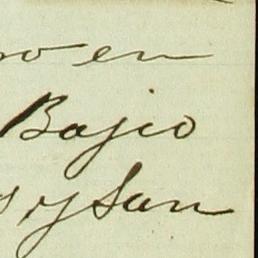 en
Bajio
y San